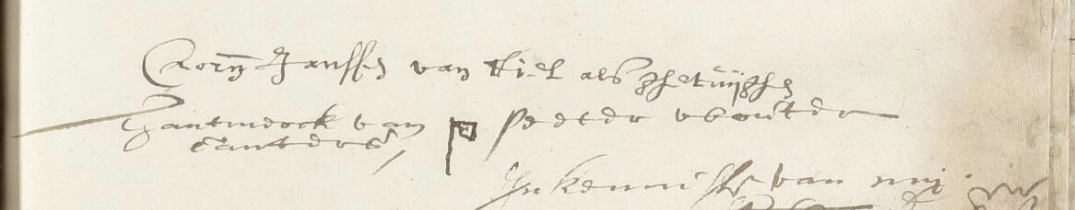 Corn Janssen van tiel als ghetuijghe
hantmerck van Peeter wouter
In kennisse van mij